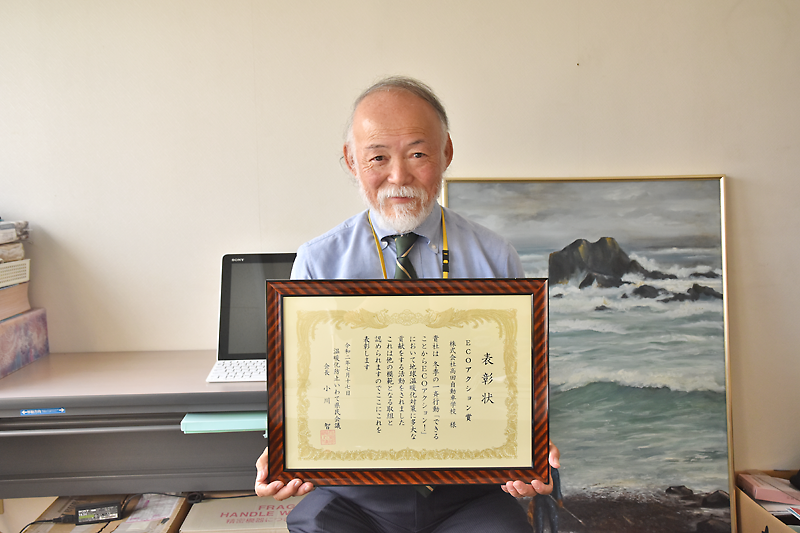 表彰状
ECOアクション賞
株式会社高田自動車学校 様
貴社は 冬季の一斉行動「できる
ことからECOアクション！」
において地球温暖化対策に多大な
貢献をする活動をされました
これは他の模範となる取組と
認められますのでここにこれを
表彰します
令和二年七月十七日
温暖化防止いわて県民会議
会長 小川 智
SONY
FRAG
HANDLE W